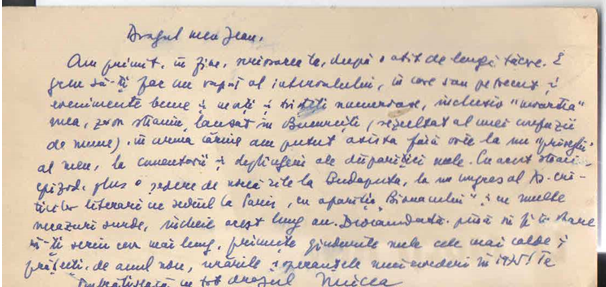 Dragul meu Jean,
Am primit, în fine, scrisoarea ta, după o atît de lungă tăcere. E
greu să-ți fac un raport al intervalului, în care s-au petrecut și
evenimente bune și multe și tristeți numeroase, inclusiv "moartea"
mea, zvon straniu, lansat în București (rezultat al unei confuzii
de nume), în urma căruia am putut asista fără voie la un "privilegiu"
al meu, la comentarii și al dispariției mele. Cu acest straniu
episod, plus o ședere de zile la Budapesta, la un congres al
criticilor literari cu sediul la Paris, cu apariția "și cu multe
necazuri surde, închei acest lung an. Deocamdată, pînă să fiu în stare
să-ți scriu ceva mai lung, primește gîndurile mele cele mai calde și
frățești, de anul nou, urările și speranțele unei revederi în 1975! Te
îmbrățișează cu tot dragul Mircea